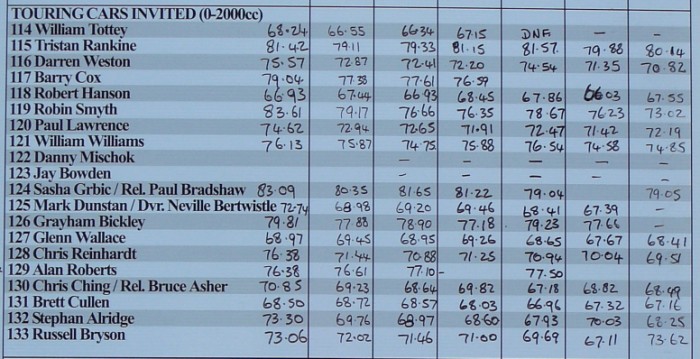 TOURING CARS INVITED (0-2000cc)
114 William Tottey 68.24 66.55 66.34 67.15 DNF – –
115 Tristan Rankine 81.42 79.11 79.33 81.15 81.57 79.88 80.14
116 Darren Weston 75.57 72.87 72.41 72.20 74.54 71.35 70.82
117 Barry Cox 79.04 77.38 77.61 76.59
118 Robert Hanson 66.93 67.44 66.93 68.45 67.86 66.03 67.55
119 Robin Smyth 83.61 79.17 76.66 76.35 78.67 76.23 73.02
120 Paul Lawrence 74.62 72.94 72.65 71.91 72.47 71.42 72.19
121 William Williams 76.13 75.87 74.75 75.88 76.54 74.58 74.85
122 Danny Mischok – – – – –
123 Jay Bowden – – – – –
124 Sasha Grbic / Rel. Paul Bradshaw 83.09 80.35 81.65 81.22 79.04 79.05
125 Mark Dunstan / Dvr. Neville Bertwistle 72.74 68.98 69.20 69.46 68.41 67.39 –
126 Grayham Bickley 79.81 77.88 78.90 77.18 79.23 77.66 –
127 Glenn Wallace 68.97 69.45 68.95 69.26 68.65 67.67 68.41
128 Chris Reinhardt 76.38 71.44 70.88 71.25 70.94 70.04 69.51
129 Alan Roberts 76.38 76.61 77.10 – 77.50
130 Chris Ching / Rel. Bruce Asher 70.85 69.23 68.64 69.82 67.18 68.82 68.49
131 Brett Cullen 68.50 68.72 68.57 68.03 66.96 67.32 67.16
132 Stephan Alridge 73.30 69.76 68.97 68.60 67.93 70.03 68.25
133 Russell Bryson 73.06 72.02 71.46 71.00 69.69 67.11 73.62